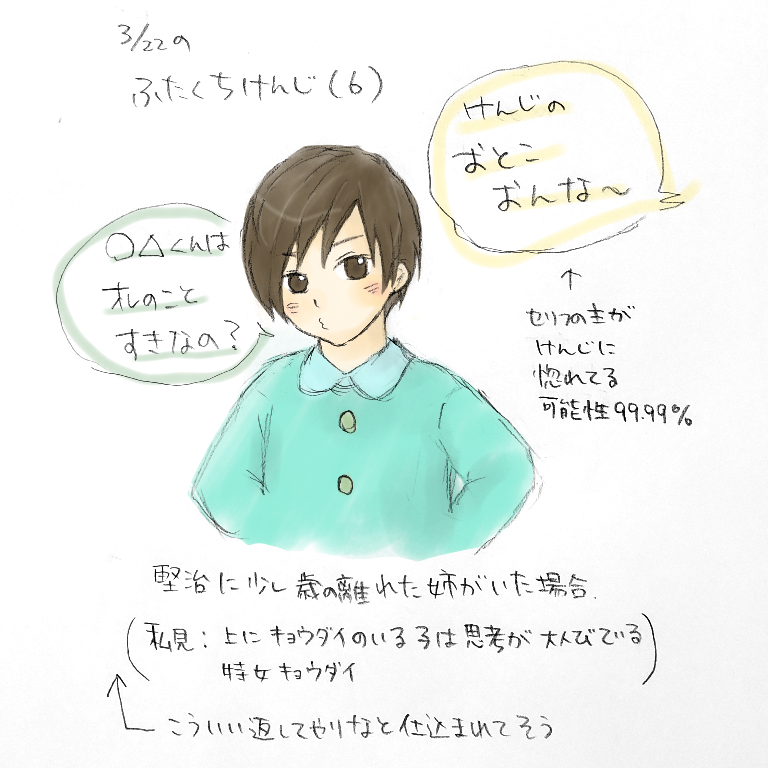 3/22の
ふたくちけんじ(6)
けんじの
おとこ
おんな〜
○△くんは
オレのこと
すきなの?
↑
セリフの主が
けんじに
惚れてる
可能性99.99%
堅治に少し歳の離れた姉がいた場合.
(私見:上にキョウダイのいる子は思考が大人びている
特女キョウダイ)
こういい返してやりなと仕込まれてそう